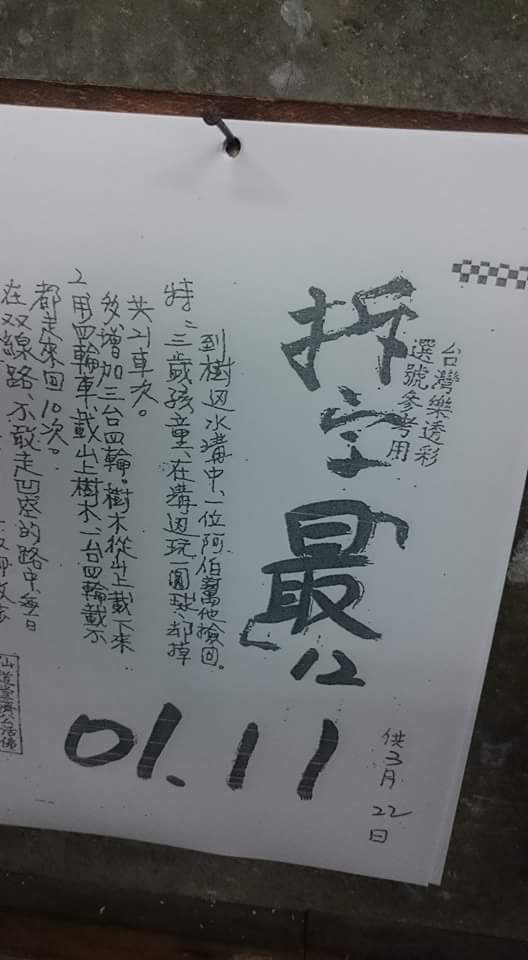 台灣樂透彩
選號參考用
拆字最12
供3月22日
01.11
在双線路、不敢走凹的路中每日
都走來回10次。
2用四輪車、載山上樹木一台四輪載不
多增加三台四輪。樹木從山上載下來
共21車次。
特、三歲孩童、在溝边玩一圓球、却掉
到樹边水溝中、一位阿伯幫他撿回。
濟公活佛